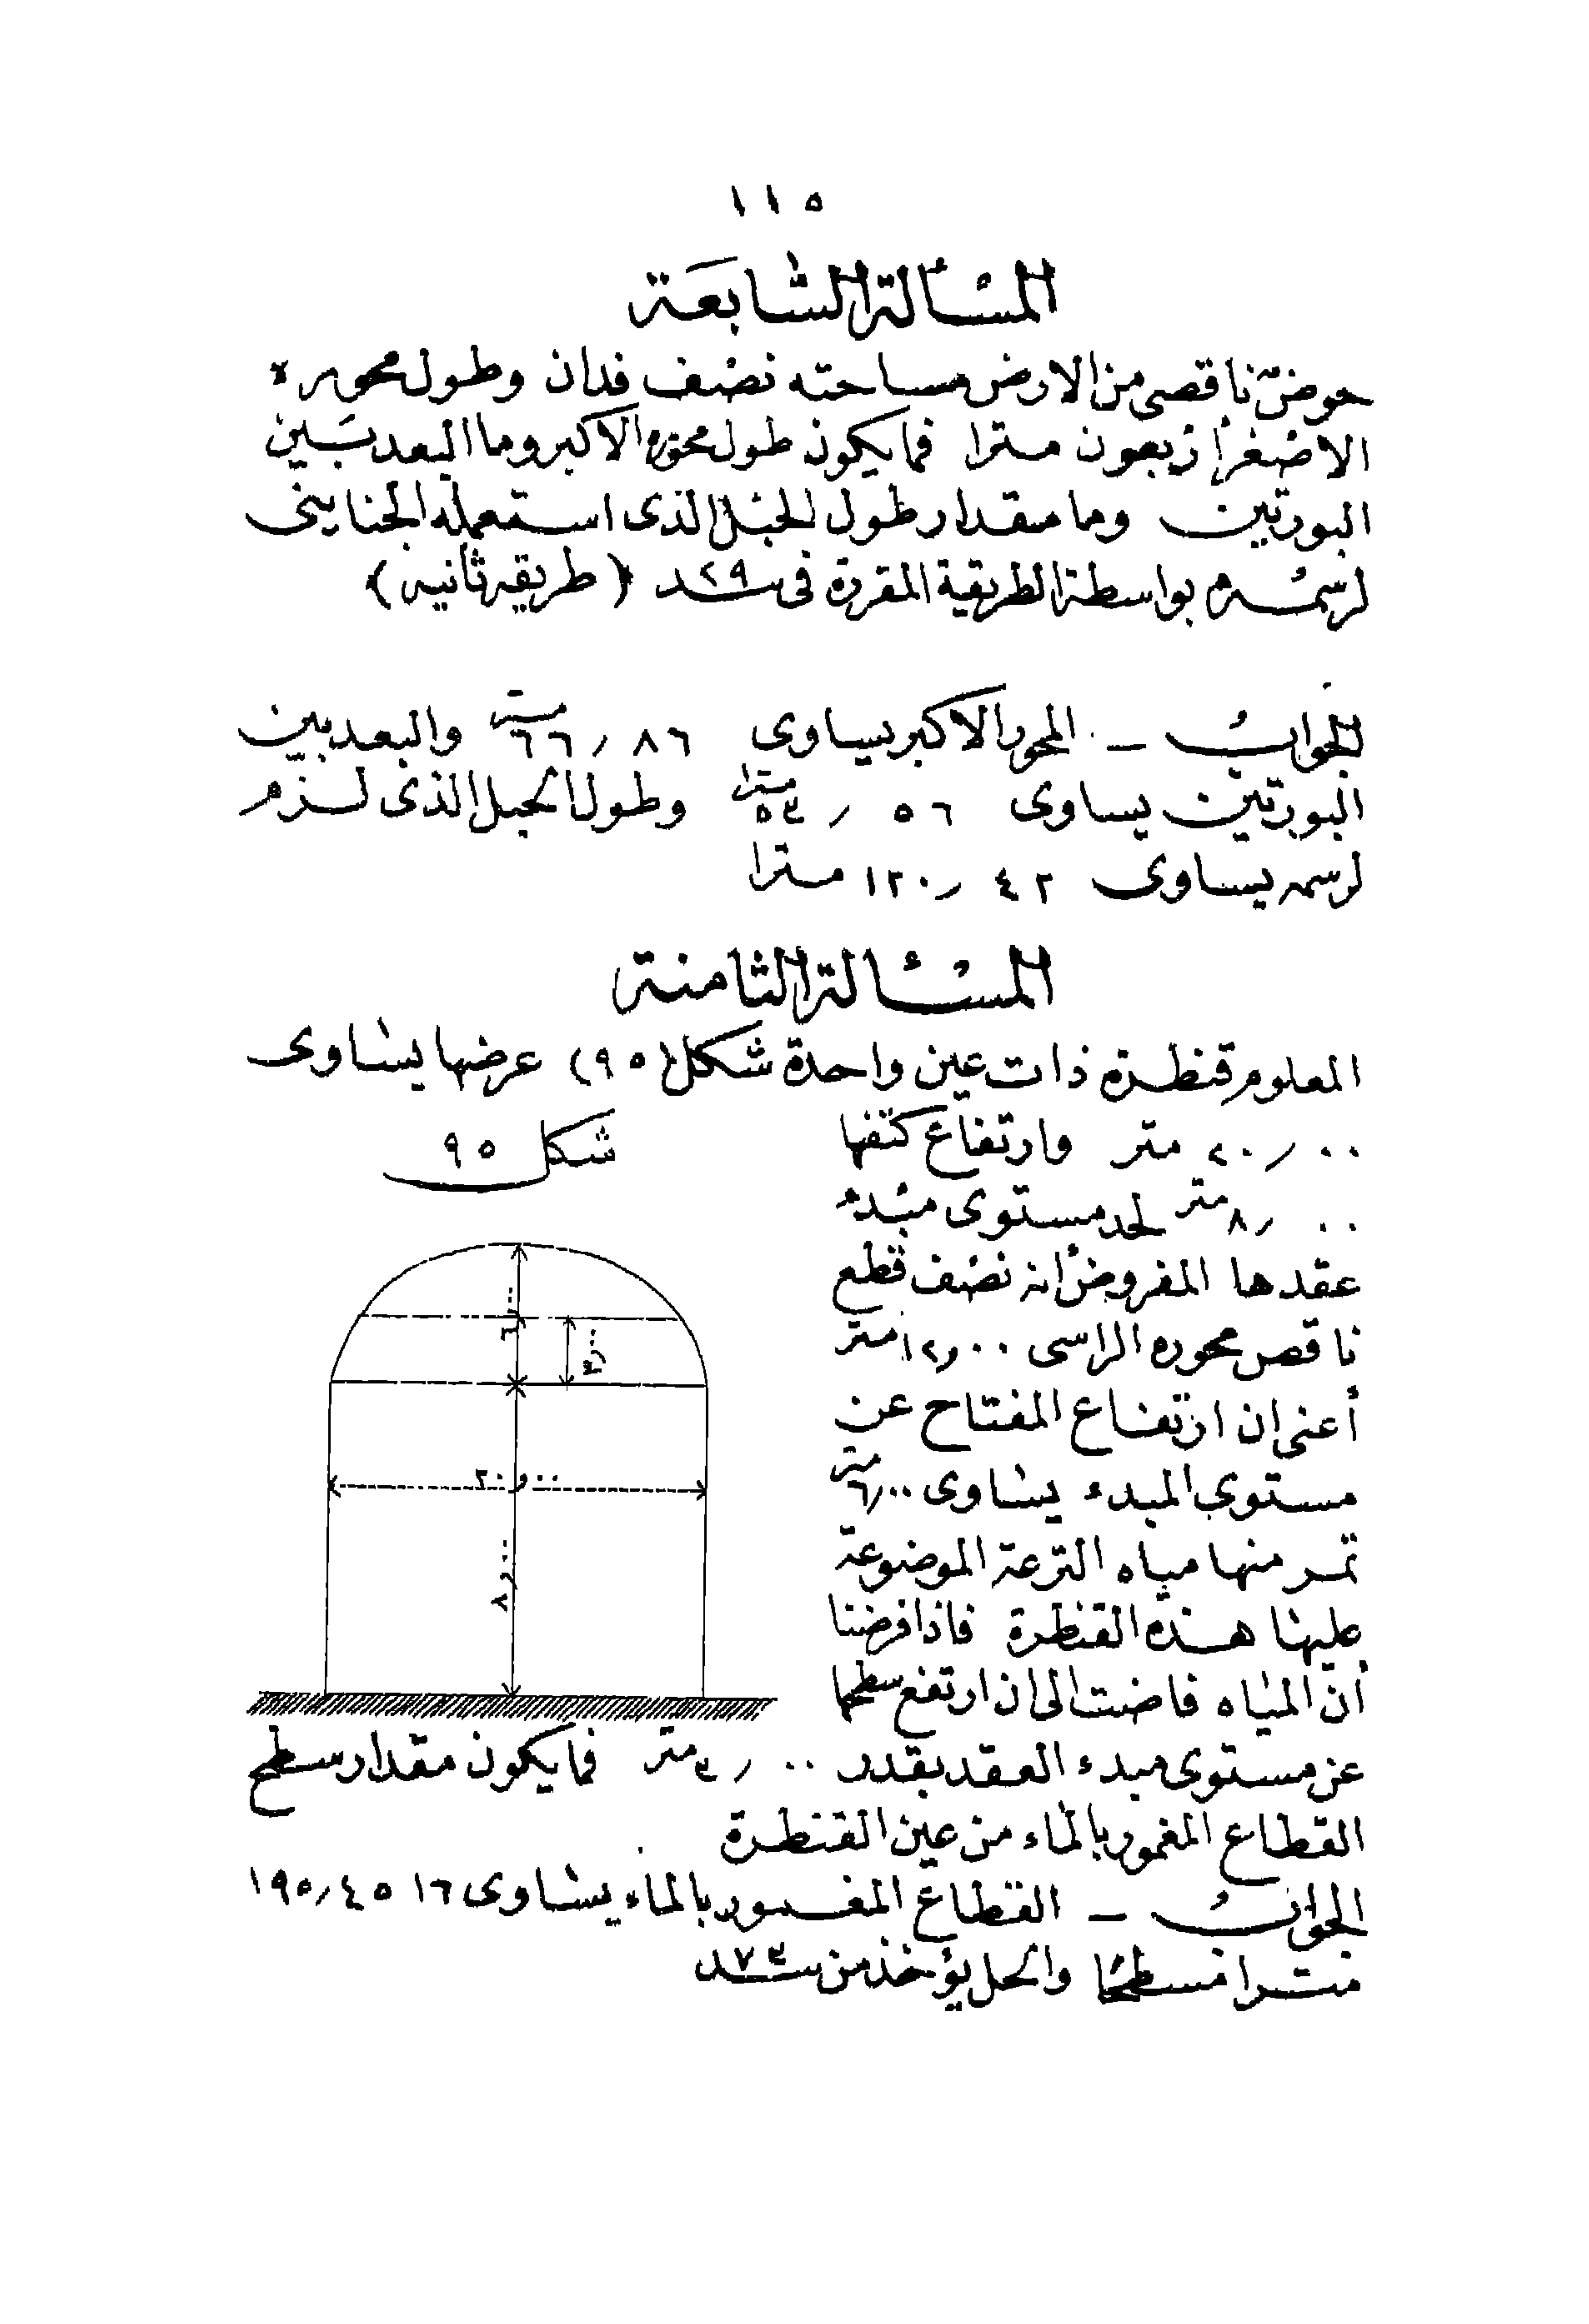 ١١٥
المسألة السابعة
حوض ناقصى من الارض مساحته نصف فدان وطول محوره
الاصغر أربعون مترا فما يكون طول محوره الاكبر وما البعد بين
البورتين وما مقدار طول الحبل الذى استعمله الجناينى
لرسمه بواسطة الطريقة المقررة فى سند ٢٩ (طريقه ثانيه)
الجواب — المحور الاكبر يساوى ٦٦٫٨٦ متر والبعد بين
البورتين يساوى ٥٣٫٥٦ مترا وطول الحبل الذى لزم
لرسمه يساوى ١٢٠٫٤٢ مترا
المسئالة الثامنة
المعلوم قنطرة ذات عين واحدة شكل (٩٥) عرضها يساوى
٢٠٫٠٠ متر وارتفاع كتفها
٨٫٠٠ متر لحد مستوى مبدء
عقدها المفروض أنه نصف قطع
ناقص محوره الراسى ١٢٫٠٠ متر
أعنى ان ارتفاع المفتاح عن
مستوى المبدء يساوى ٦٫٠٠ متر
تمر منها مياه الترعة الموضوعة
عليها هذه القنطرة فاذا فرضنا
أن المياه فاضت الى ان ارتفع سطحها
عن مستوى مبدء العقد بقدر ٣٫٠٠ متر فما يكون مقدار سطح
القطاع المغمور بالماء من عين القنطرة
الجواب — القطاع المغمور بالماء يساوى ١٩٥٫٤٥١٦
مترا مسطحا والحل يؤخذ من سند ٧٣
شكل ٩٥
٦٫٠٠
٣٫٠٠
٢٠٫٠٠
٨٫٠٠